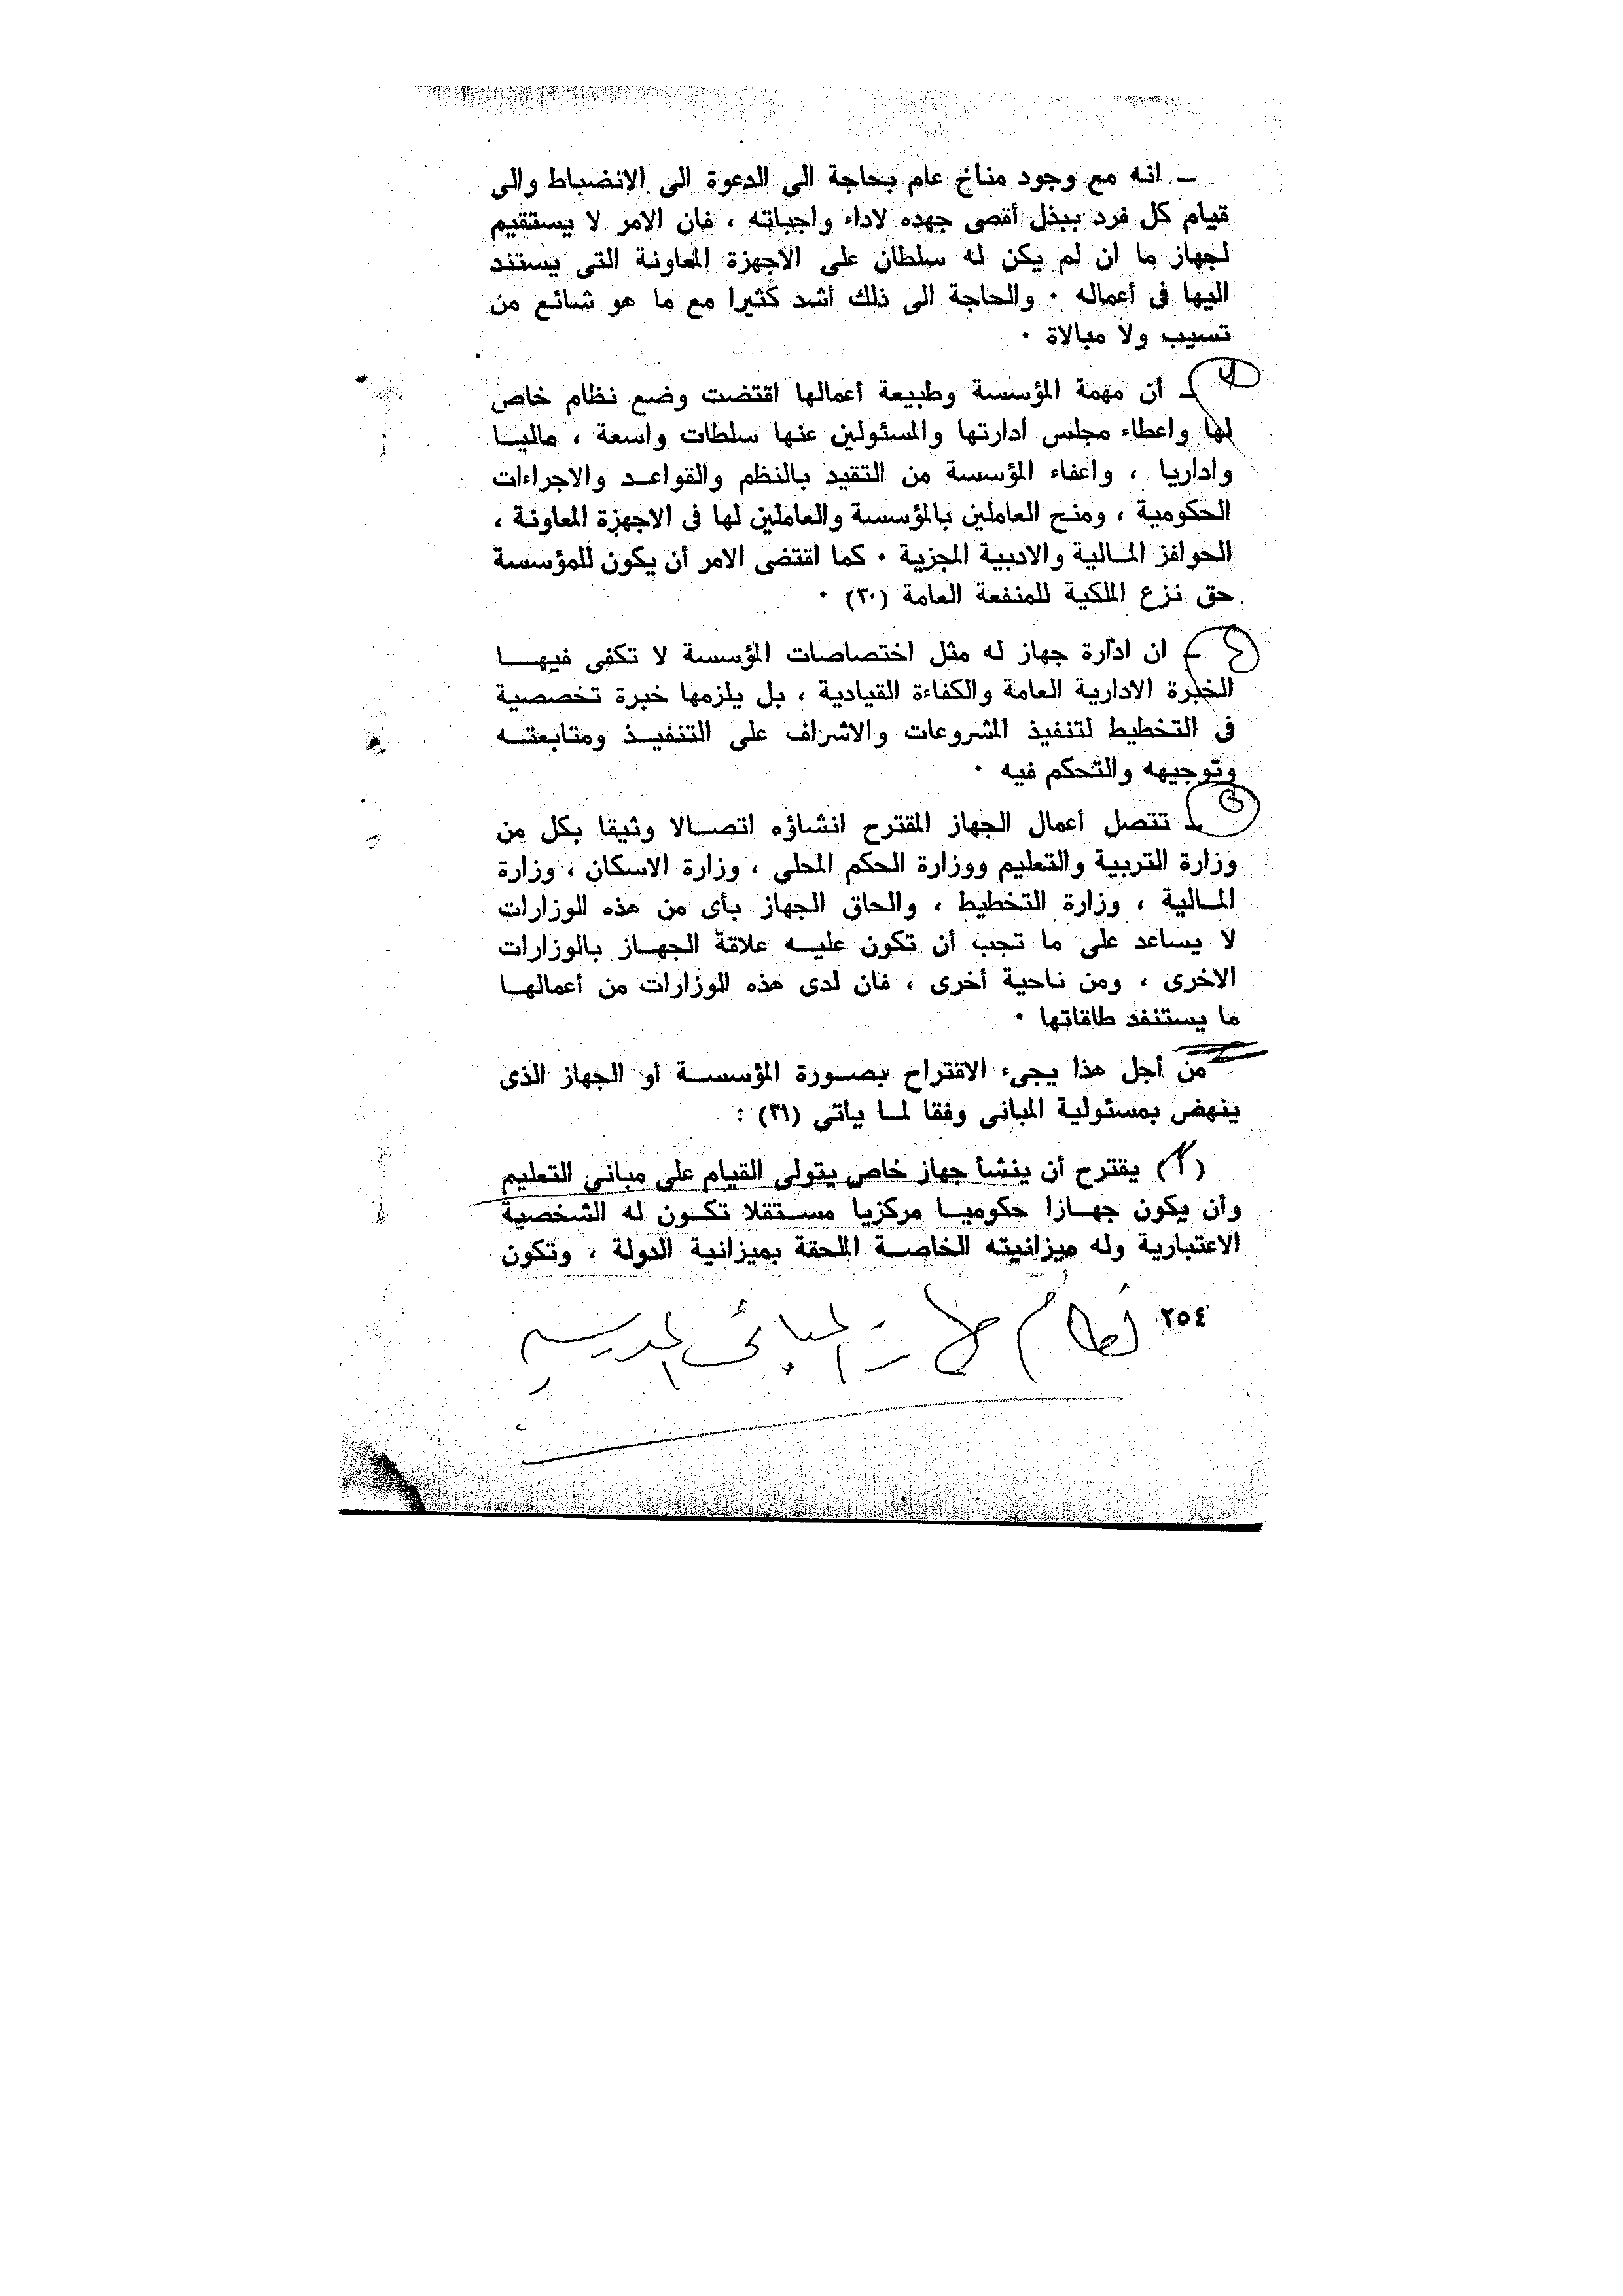 ـ انه مع وجود مناخ عام بحاجة الى الدعوة الى الانضباط والى
قيام كل فرد ببذل أقصى جهده لاداء واجباته ، فان الامر لا يستقيم
لجهاز ما ان لم يكن له سلطان على الاجهزة المعاونة التى يستند
اليها فى أعماله . والحاجة الى ذلك أشد كثيرا مع ما هو شائع من
تسيب ولا مبالاة .
ـ أن مهمة المؤسسة وطبيعة أعمالها اقتضت وضع نظام خاص
لها واعطاء مجلس ادارتها والمسئولين عنها سلطات واسعة ، ماليا
واداريا ، واعفاء المؤسسة من التقيد بالنظم والقواعد والاجراءات
الحكومية ، ومنح العاملين بالمؤسسة والعاملين لها فى الاجهزة المعاونة ،
الحوافز المالية والادبية المجزية . كما اقتضى الامر أن يكون للمؤسسة
حق نزع الملكية للمنفعة العامة (٣٠) .
٤ ـ ان ادارة جهاز له مثل اختصاصات المؤسسة لا تكفى فيها
الخبرة الادارية العامة والكفاءة القيادية ، بل يلزمها خبرة تخصصية
فى التخطيط لتنفيذ المشروعات والاشراف على التنفيذ ومتابعته
وتوجيهه والتحكم فيه .
٥ ـ تتصل أعمال الجهاز المقترح انشاؤه اتصالا وثيقا بكل من
وزارة التربية والتعليم ووزارة الحكم المحلى ، وزارة الاسكان ، وزارة
المالية ، وزارة التخطيط ، والحاق الجهاز بأى من هذه الوزارات
لا يساعد على ما تجب أن تكون عليه علاقة الجهاز بالوزارات
الاخرى ، ومن ناحية أخرى ، فان لدى هذه الوزارات من أعمالها
ما يستنفد طاقاتها .
من أجل هذا يجىء الاقتراح بصورة المؤسسة أو الجهاز الذى
ينهض بمسئولية المبانى وفقا لما يأتى (٣١) :
(أ) يقترح أن ينشأ جهاز خاص يتولى القيام على مبانى التعليم
وأن يكون جهازا حكوميا مركزيا مستقلا تكون له الشخصية
الاعتبارية وله ميزانيته الخاصة الملحقة بميزانية الدولة ، وتكون
٢٥٤
المبانى المدرسية